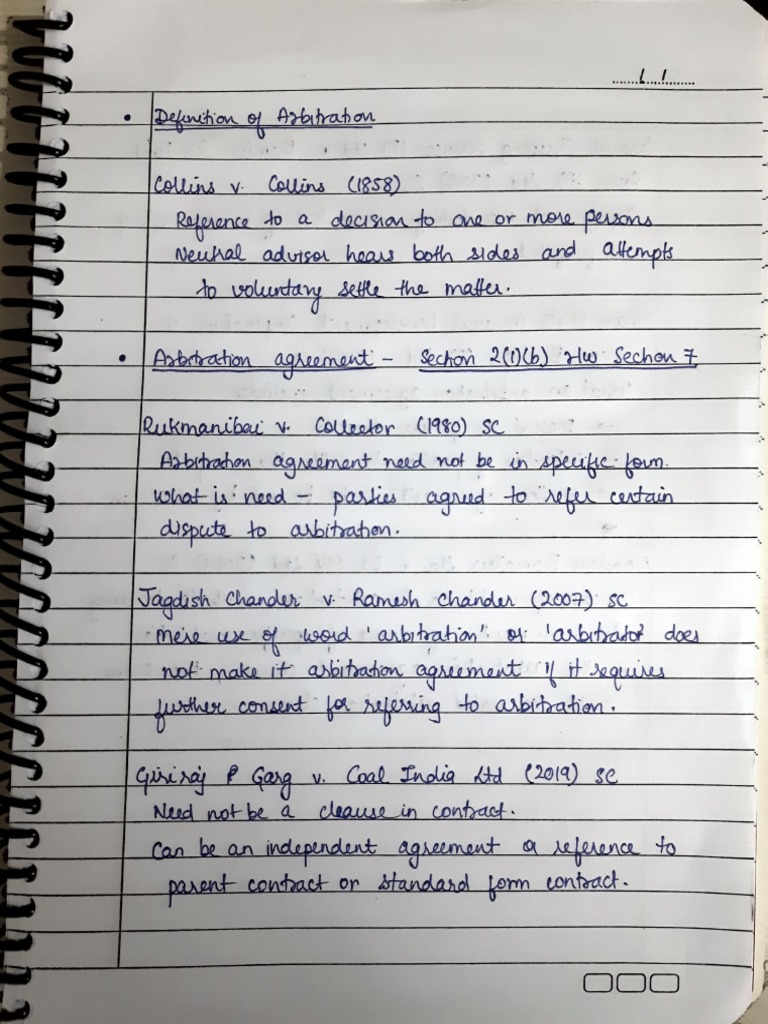 • Definition of Arbitration
Collins v. Collins (1858)
Reference to a decision to one or more persons
Neutral advisor hears both sides and attempts
to voluntary settle the matter.
• Arbitration agreement - Section 2(1)(b) r/w Section 7
Rukmanibai v. Collector (1980) SC
Arbitration agreement need not be in specific form.
What is need - parties agreed to refer certain
dispute to arbitration.
Jagdish Chander v. Ramesh Chander (2007) SC
Mere use of word 'arbitration" or 'arbitrator' does
not make it arbitration agreement if it requires
further consent for referring to arbitration.
Giriraj P Garg v. Coal India Ltd (2019) SC
Need not be a cleause in contract.
Can be an independent agreement or reference to
parent contract or standard form contract.